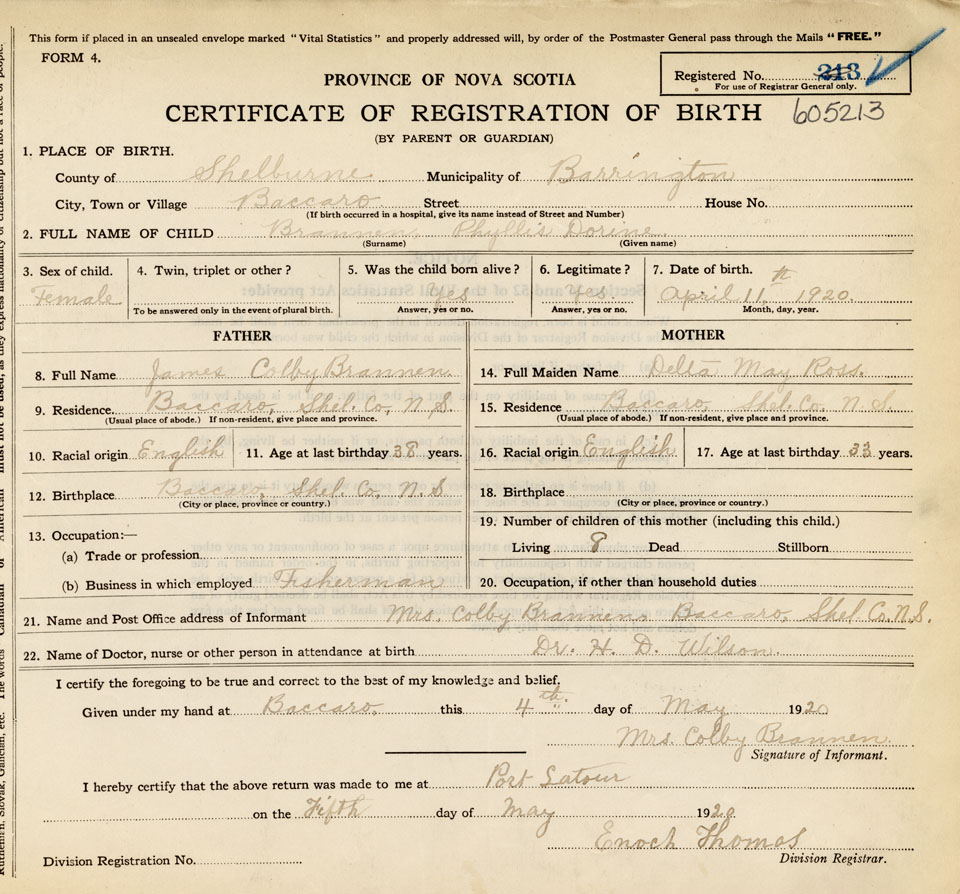 This form if placed in an unsealed envelope marked "Vital Statistics" and properly addressed will, by order of the Postmaster General pass through the Mails "FREE."
FORM 4.
Registered No. 213
For use of Registrar General only.
PROVINCE OF NOVA SCOTIA
CERTIFICATE OF REGISTRATION OF BIRTH 605213
(BY PARENT OR GUARDIAN)
1. PLACE OF BIRTH.
County of Shelburne Municipality of Barrington
City, Town or Village Baccaro Street House No.
(If birth occurred in a hospital, give its name instead of Street and Number)
2. FULL NAME OF CHILD Brannen Phyllis Dorine
(Surname) (Given name)
3. Sex of child. 4. Twin, triplet or other? 5. Was the child born alive? 6. Legitimate? 7. Date of birth.
Female Yes Yes. April 11th 1920.
To be answered only in the event of plural birth. Answer, yes or no. Answer, yes or no. Month, day, year.
FATHER
8. Full Name James Colby Brannen
9. Residence. Baccaro, Shel. Co, N. S.
(Usual place of abode.) If non-resident, give place and province.
10. Racial origin English 11. Age at last birthday 38 years.
12. Birthplace Baccaro, Shel. Co, N. S
(City or place, province or country.)
13. Occupation:—
(a) Trade or profession
(b) Business in which employed Fisherman
MOTHER
14. Full Maiden Name Delta May Ross.
15. Residence Baccaro, Shel. Co, N. S.
(Usual place of abode.) If non-resident, give place and province.
16. Racial origin English 17. Age at last birthday 33 years.
18. Birthplace
(City or place, province or country.)
19. Number of children of this mother (including this child.)
Living 8 Dead Stillborn
20. Occupation, if other than household duties
21. Name and Post Office address of Informant Mrs. Colby Brannen, Baccaro, Shel Co. N.S.
22. Name of Doctor, nurse or other person in attendance at birth Dr. H. D. Wilson.
I certify the foregoing to be true and correct to the best of my knowledge and belief.
Given under my hand at Baccaro, this 4th day of May 1920
Mrs. Colby Brannen.
Signature of Informant.
I hereby certify that the above return was made to me at Port Latour
on the Fifth day of May 1920.
Enoch Thomas
Division Registration No. Division Registrar.